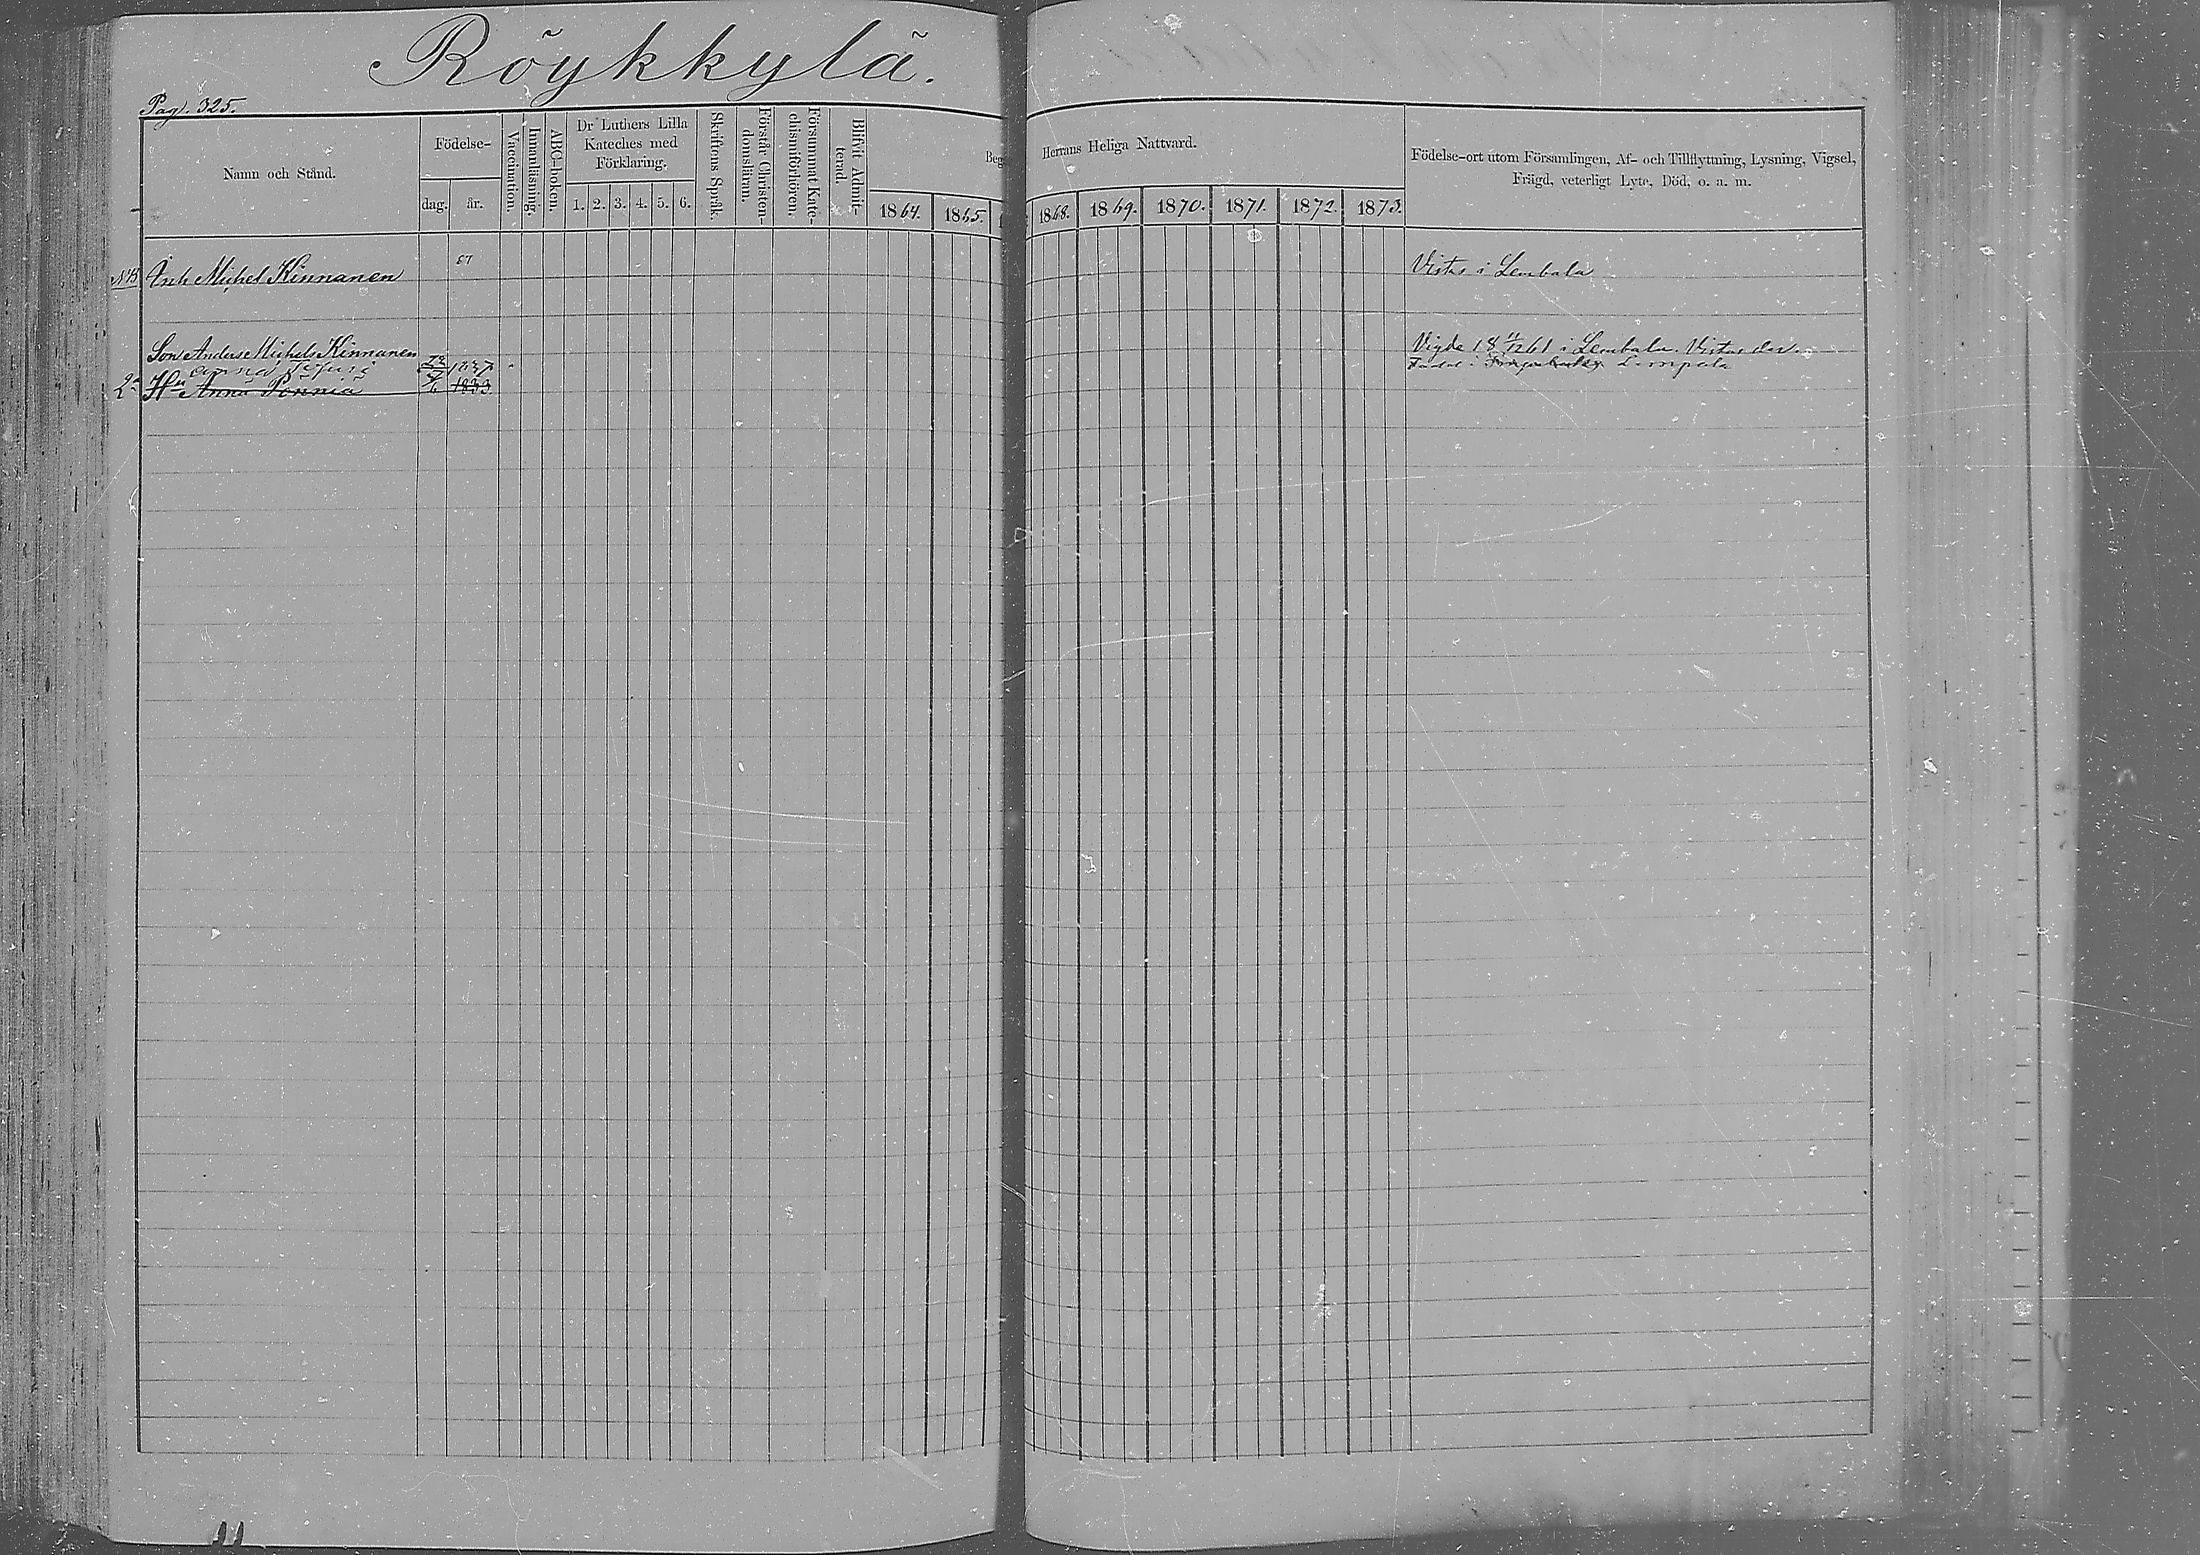 Röykkylä.
Pag. 325.
Namn och Stånd.
Födelse-
dag. år.
Vaccination.
Innanläsning.
ABC-boken.
Dr Luthers Lilla
Kateches med
Förklaring.
1. 2. 3. 4. 5. 6.
Skriftens Språk.
Förstår Christen-
domsläran.
Försummat Kate-
chismiförhören.
Blifvit Admit-
terad.
Beg
1864. 1865.
Herrans Heliga Nattvard.
1868. 1869. 1870. 1871. 1872. 1873.
Födelse-ort utom Församlingen, Af- och Tillflyttning, Lysning, Vigsel,
Frägd, veterligt Lyte, Död, o. a. m.
NB Michel Kinnanen 67 Vistas i Lembala
Son Anders Michels Kinnanen Vigde 18 61 i Lembala. Vistas der.
Anna 1837 Född i Lempala
2a Hu Anna 1833.